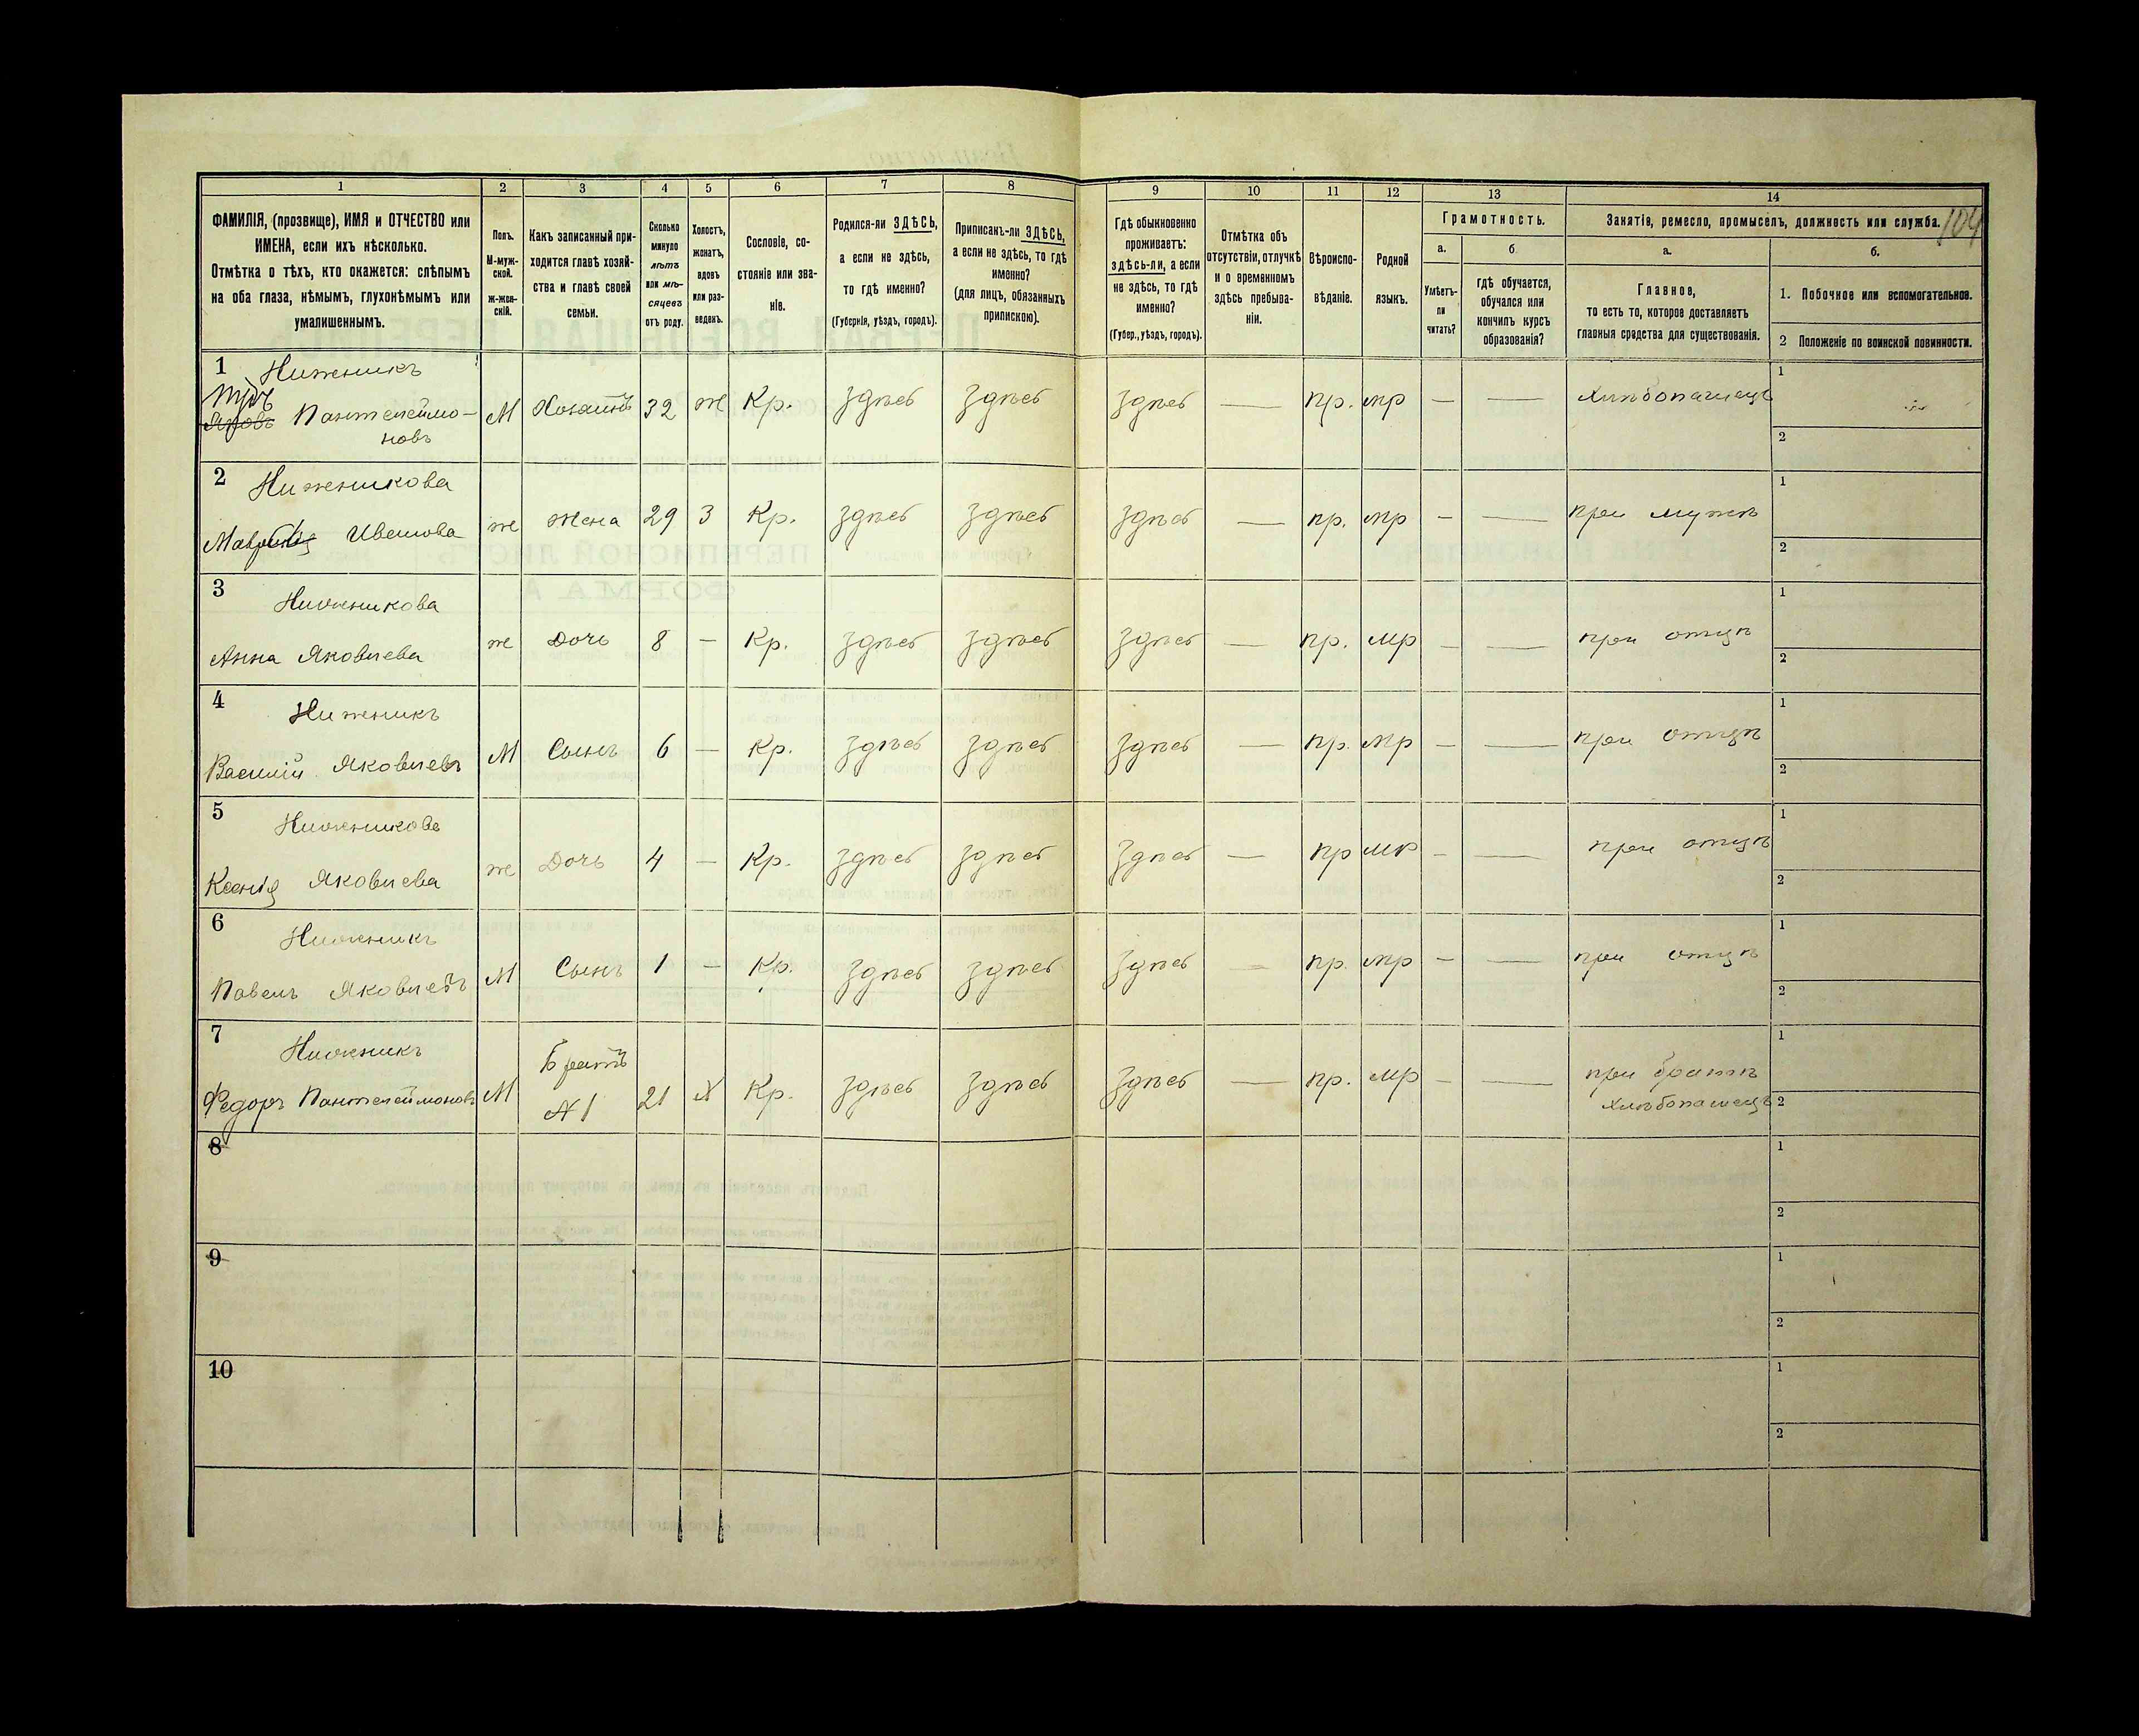 1 2 3 4 5 6 7 8 9 10 11 12 13 14
ФАМИЛІЯ, (прозвище), ИМЯ и ОТЧЕСТВО или
ИМЕНА, если ихъ нѣсколько.
Отмѣтка о тѣхъ, кто окажется: слѣпымъ
на оба глаза, нѣмымъ, глухонѣмымъ или
умалишеннымъ.
Полъ.
М-муж-
ской.
ж-жен-
скій.
Какъ записанный при-
ходится главѣ хозяй-
ства и главѣ своей
семьи.
Сколько
минуло
лѣтъ
или мѣ-
сяцевъ
отъ роду.
Холостъ,
женатъ,
вдовъ
или раз-
веденъ.
Сословіе, со-
стояніе или зва-
ніе.
Родился-ли ЗДѢСЬ,
а если не здѣсь,
то гдѣ именно?
(Губернія, уѣздъ, городъ).
Приписанъ-ли ЗДѢСЬ,
а если не здѣсь, то гдѣ
именно?
(для лицъ, обязанныхъ
припискою).
Гдѣ обыкновенно
проживаетъ:
здѣсь-ли, а если
не здѣсь, то гдѣ
именно?
(Губер., уѣздъ, городъ).
Отмѣтка объ
отсутствіи, отлучкѣ
и о временномъ
здѣсь пребыва-
ніи.
Вѣроиспо-
вѣданіе.
Родной
языкъ.
Грамотность.
а.
Умѣетъ-
ли
читать?
б
гдѣ обучается,
обучался или
кончилъ курсъ
образованія?
Занятія, ремесло, промыселъ, должность или служба. 104
а.
Главное,
то есть то, которое доставляетъ
главныя средства для существованія.
б.
1. Побочное или вспомогательное.
2 Положеніе по воинской повинности.
1 Ниженикъ
Яковъ Пантелеймо-
новъ
М Хозяинъ 32 ж Кр. здѣсь здѣсь здѣсь — пр. мр — — Хлѣбопашецъ
1
2
2 Ниженикова
Иванова
же жена 29 З Кр. здѣсь здѣсь здѣсь — пр. мр — — при мужѣ
1
2
3 Ниженикова
Анна Яковлева
же Дочь 8 — Кр. здѣсь здѣсь здѣсь — пр. мр — — при отцѣ
1
2
4 Ниженикъ
Василій Яковлевъ
М Сынъ 6 — Кр. здѣсь здѣсь здѣсь — пр. мр — — при отцѣ
1
2
5 Ниженикова
Ксенія Яковлева
же Дочь 4 — Кр. здѣсь здѣсь здѣсь — пр мр — — при отцѣ
1
2
6 Ниженикъ
Павелъ Яковлевъ
М Сынъ 1 — Кр. здѣсь здѣсь здѣсь — пр. мр — — при отцѣ
1
2
7 Ниженикъ
Федоръ Пантелеймоновъ
М Братъ
№ 1
21 Х Кр. здѣсь здѣсь здѣсь — пр. мр — — при братѣ
Хлѣбопашецъ
1
2
8
1
2
9
1
2
10
1
2